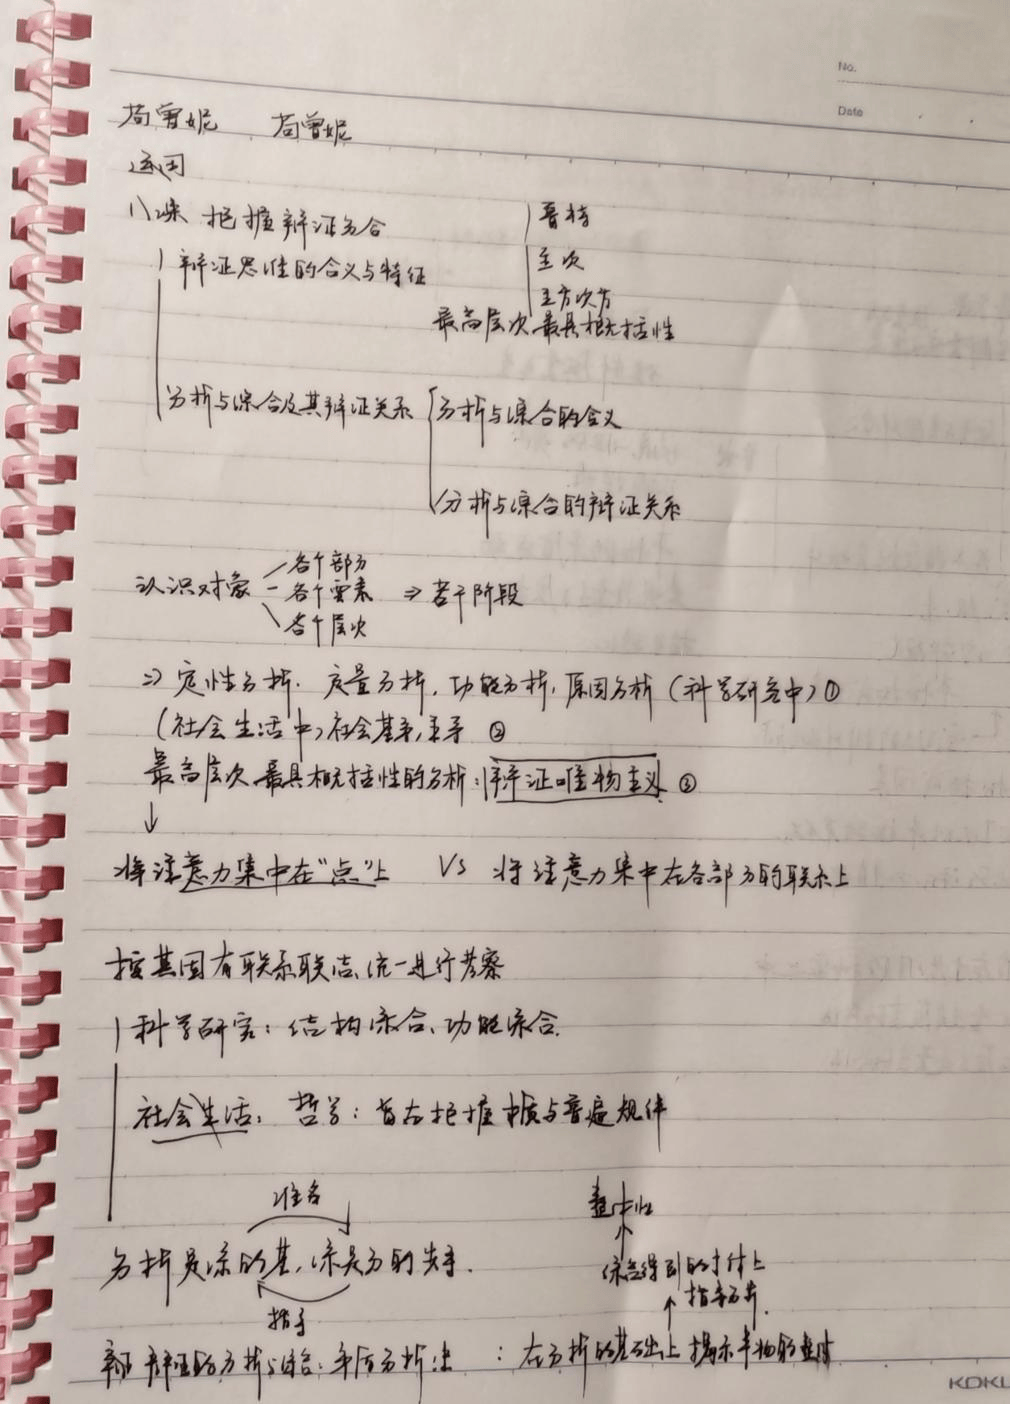 No.
Date
苟曾妮 苟曾妮
运用
八课 把握辩证分合
普特
辩证思维的含义与特征
主次
主方次方
最高层次 最具概括性
分析与综合及其辩证关系
分析与综合的含义
分析与综合的辩证关系
认识对象
各个部分
各个要素 ⇒ 若干阶段
各个层次
⇒ 定性分析、定量分析、功能分析、原因分析（科学研究中）①
（社会生活中）社会基矛,主矛 ②
最高层次 最具概括性的分析：辩证唯物主义 ③
↓
将注意力集中在“点”上 VS 将注意力集中在各部分的联系上
按其固有联系联结、统一进行考察
科学研究：结构综合、功能综合.
社会生活； 哲学：旨在把握本质与普遍规律
准备
整体性
分析是综的基，综是分的先导.
综合得到的 上
指导
指导分析.
辩证的分析与综合：矛盾分析法 ：在分析的基础上揭示事物的整体
KOKU